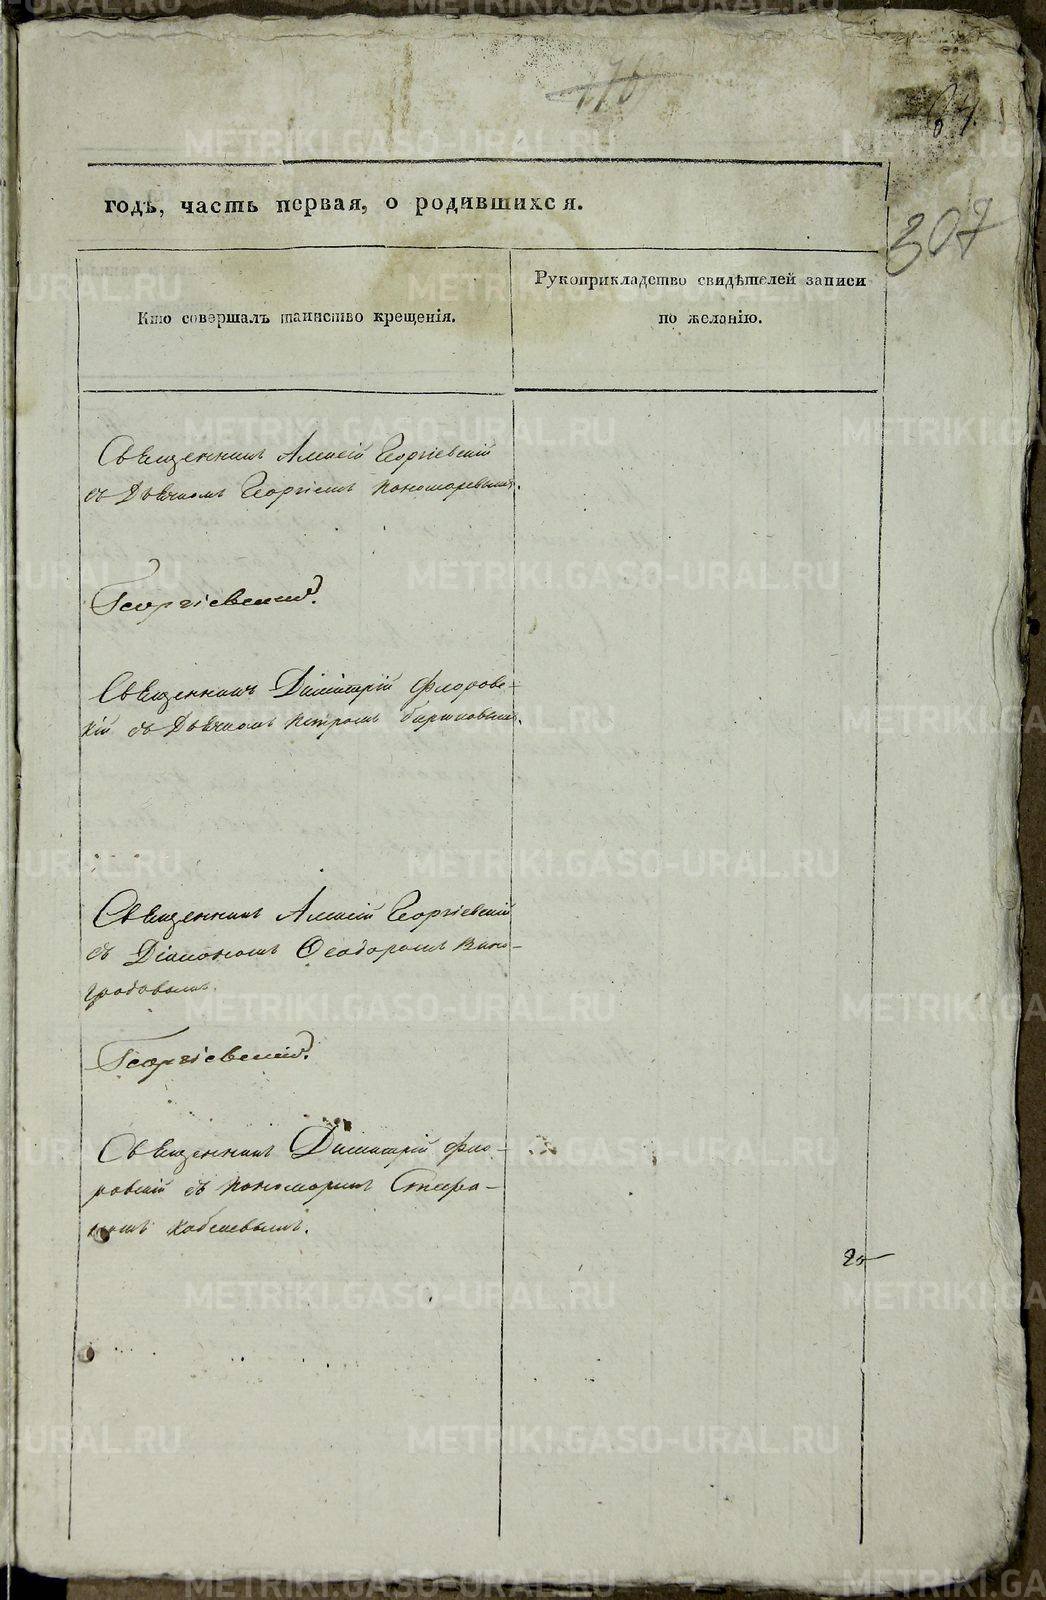 1769
307
годъ, часть первая, о родившихся.
Кто совершалъ таинство крещенія.
Рукоприкладство свидѣтелей записи
по желанію.
Священникъ Алексій Георгіевскій
съ Дьячкомъ Георгіемъ Пономаревымъ.
Георгіевскій.
Священникъ Димитрій Флоровс-
кій съ Дьячкомъ Петромъ
Священникъ Алексій Георгіевскій
съ Діакономъ Ѳеодоромъ Вино-
градовымъ.
Георгіевскій.
Священникъ Димитрій Фло-
ровскій съ пономаремъ Стефа-
номъ
METRIKI.GASO-URAL.RU